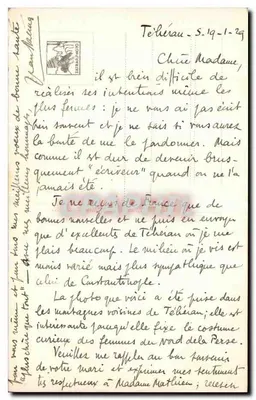 Téhéran - S. 19-1-29
Chère Madame,
il est bien difficile de
réaliser ses intentions même les
plus fermes : je ne vous ai pas écrit
bien souvent et je ne sais si vous aurez
la bonté de me le pardonner. Mais
comme il est dur de devenir brus-
quement "écriveur" quand on ne l'a
jamais été.
Je ne reçois de France que de
bonnes nouvelles et ne puis en envoyer
que d'excellentes de Téhéran où je me
plais beaucoup. Le milieu où je vis est
moins varié mais plus sympathique que
celui de Constantinople.
La photo que voici a été prise dans
les montagnes voisines de Téhéran; elle est
intéressante puisqu'elle fixe le costume
curieux des femmes du nord de la Perse.
Veuillez me rappeler au bon souvenir
de votre mari et exprimer mes sentiments
très respectueux à Madame Mathieu;
pour vous même et pour vous mes meilleurs voeux de bonne santé
"plus chère que tout"
mes meilleurs hommages,